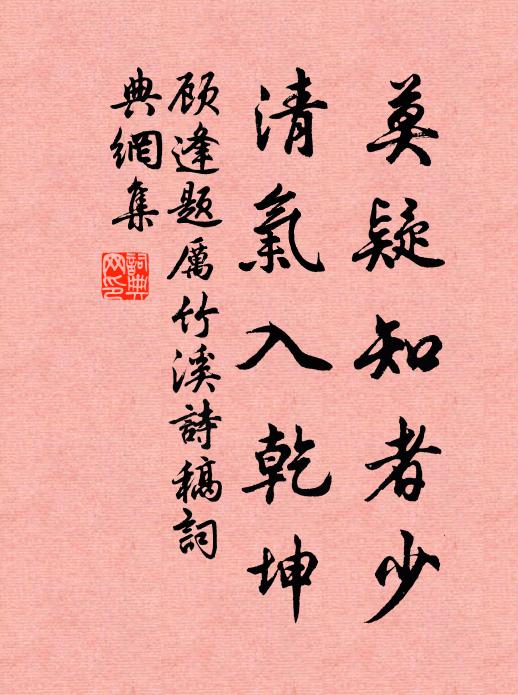 莫疑知者少
清氣入乾坤
顾逢题厲竹溪詩稿詞
典網集
詞典网印